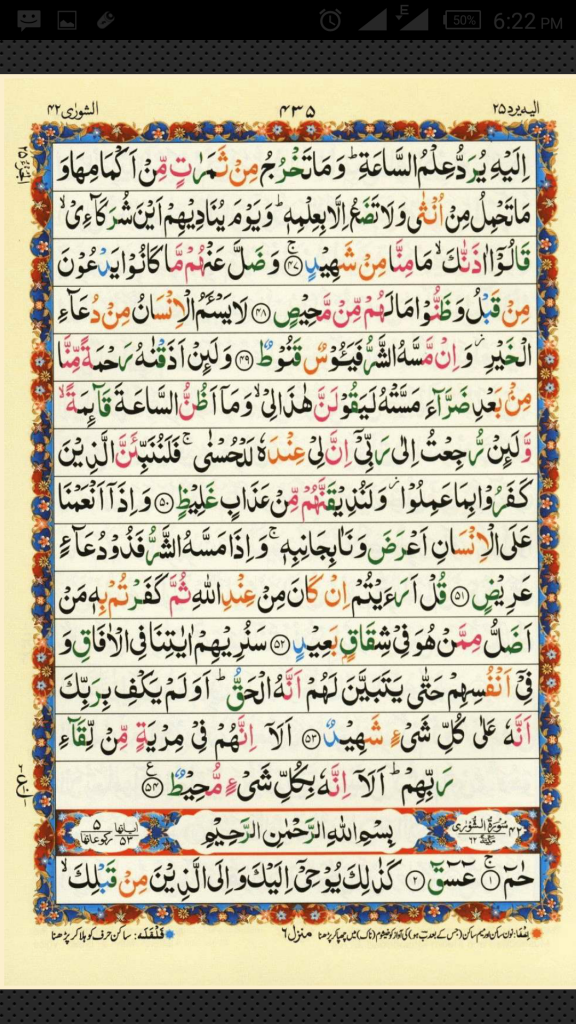 50% 6:22 PM
E
اليه يرد ٢٥
٤٣٥
الشورٰى ٤٢
اِلَيْهِ يُرَدُّ عِلْمُ السَّاعَةِ ؕ وَمَا تَخْرُجُ مِنْ ثَمَرٰتٍ مِّنْ اَكْمَامِهَا وَ
مَا تَحْمِلُ مِنْ اُنْثٰى وَلَا تَضَعُ اِلَّا بِعِلْمِهٖ ؕ وَيَوْمَ يُنَادِيْهِمْ اَيْنَ شُرَكَآءِىْ ۙ
قَالُوْۤا اٰذَنّٰكَ ۙ مَا مِنَّا مِنْ شَهِيْدٍ ۚ ﴿٤٧﴾ وَضَلَّ عَنْهُمْ مَّا كَانُوْا يَدْعُوْنَ
مِنْ قَبْلُ وَظَنُّوْا مَا لَهُمْ مِّنْ مَّحِيْصٍ ﴿٤٨﴾ لَا يَسْـَٔمُ الْاِنْسَانُ مِنْ دُعَآءِ
الْخَيْرِ ؗ وَاِنْ مَّسَّهُ الشَّرُّ فَيَـُٔوْسٌ قَنُوْطٌ ﴿٤٩﴾ وَلَئِنْ اَذَقْنٰهُ رَحْمَةً مِّنَّا
مِنْۢ بَعْدِ ضَرَّآءَ مَسَّتْهُ لَيَقُوْلَنَّ هٰذَا لِىْ ۙ وَمَاۤ اَظُنُّ السَّاعَةَ قَآئِمَةً ۙ
وَّلَئِنْ رُّجِعْتُ اِلٰى رَبِّىْۤ اِنَّ لِىْ عِنْدَهٗ لَلْحُسْنٰى ۚ فَلَنُنَبِّئَنَّ الَّذِيْنَ
كَفَرُوْا بِمَا عَمِلُوْا ؗ وَلَنُذِيْقَنَّهُمْ مِّنْ عَذَابٍ غَلِيْظٍ ﴿٥٠﴾ وَاِذَاۤ اَنْعَمْنَا
عَلَى الْاِنْسَانِ اَعْرَضَ وَنَاٰ بِجَانِبِهٖ ۚ وَاِذَا مَسَّهُ الشَّرُّ فَذُوْ دُعَآءٍ
عَرِيْضٍ ﴿٥١﴾ قُلْ اَرَءَيْتُمْ اِنْ كَانَ مِنْ عِنْدِ اللّٰهِ ثُمَّ كَفَرْتُمْ بِهٖ مَنْ
اَضَلُّ مِمَّنْ هُوَ فِىْ شِقَاقٍۢ بَعِيْدٍ ﴿٥٢﴾ سَنُرِيْهِمْ اٰيٰتِنَا فِى الْاٰفَاقِ وَ
فِىْۤ اَنْفُسِهِمْ حَتّٰى يَتَبَيَّنَ لَهُمْ اَنَّهُ الْحَقُّ ؕ اَوَلَمْ يَكْفِ بِرَبِّكَ
اَنَّهٗ عَلٰى كُلِّ شَىْءٍ شَهِيْدٌ ﴿٥٣﴾ اَلَاۤ اِنَّهُمْ فِىْ مِرْيَةٍ مِّنْ لِّقَآءِ
رَبِّهِمْ ؕ اَلَاۤ اِنَّهٗ بِكُلِّ شَىْءٍ مُّحِيْطٌ ﴿٥٤﴾
٤٢ سُوْرَةُ الشُّوْرٰى ٦٢
بِسْمِ اللّٰهِ الرَّحْمٰنِ الرَّحِيْمِ
اٰیاتها ٥٣ رکوعاتها ٥
حٰمٓ ۚ ﴿١﴾ عٓسٓقٓ ﴿٢﴾ كَذٰلِكَ يُوْحِىْۤ اِلَيْكَ وَاِلَى الَّذِيْنَ مِنْ قَبْلِكَ ۙ
اِخفا: نون ساکن اور میم ساکن (جس کے بعد ب ہو) کی آواز کو خیشوم (ناک) میں چھپا کر پڑھنا
منزل ٦
قَلقَلَه: ساکن حرف کو ہلا کر پڑھنا